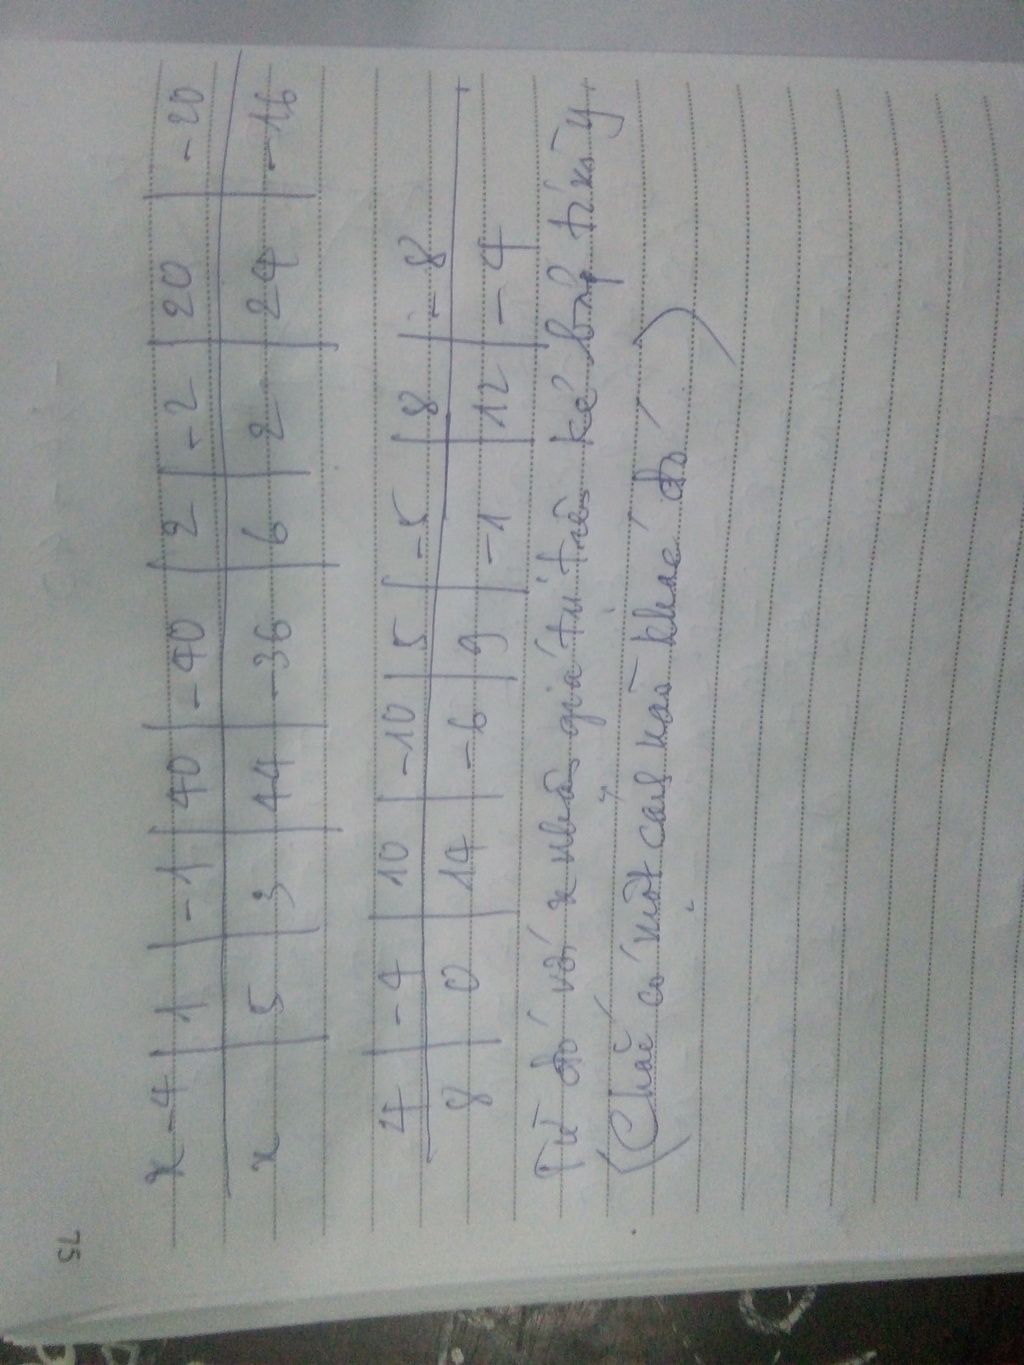 x-4 | 1 | -1 | 40 | -40 | 2 | -2 | 20 | -20
x | 5 | 3 | 44 | -36 | 6 | 2 | 24 | -16
4 | -4 | 10 | -10 | 5 | -5 | 8 | -8
8 | 0 | 14 | -6 | 9 | -1 | 12 | -4
Từ đó với x nhận giá trị trên kẻ bảng tìm y
(Chắc có một cách nào khác đó)
75